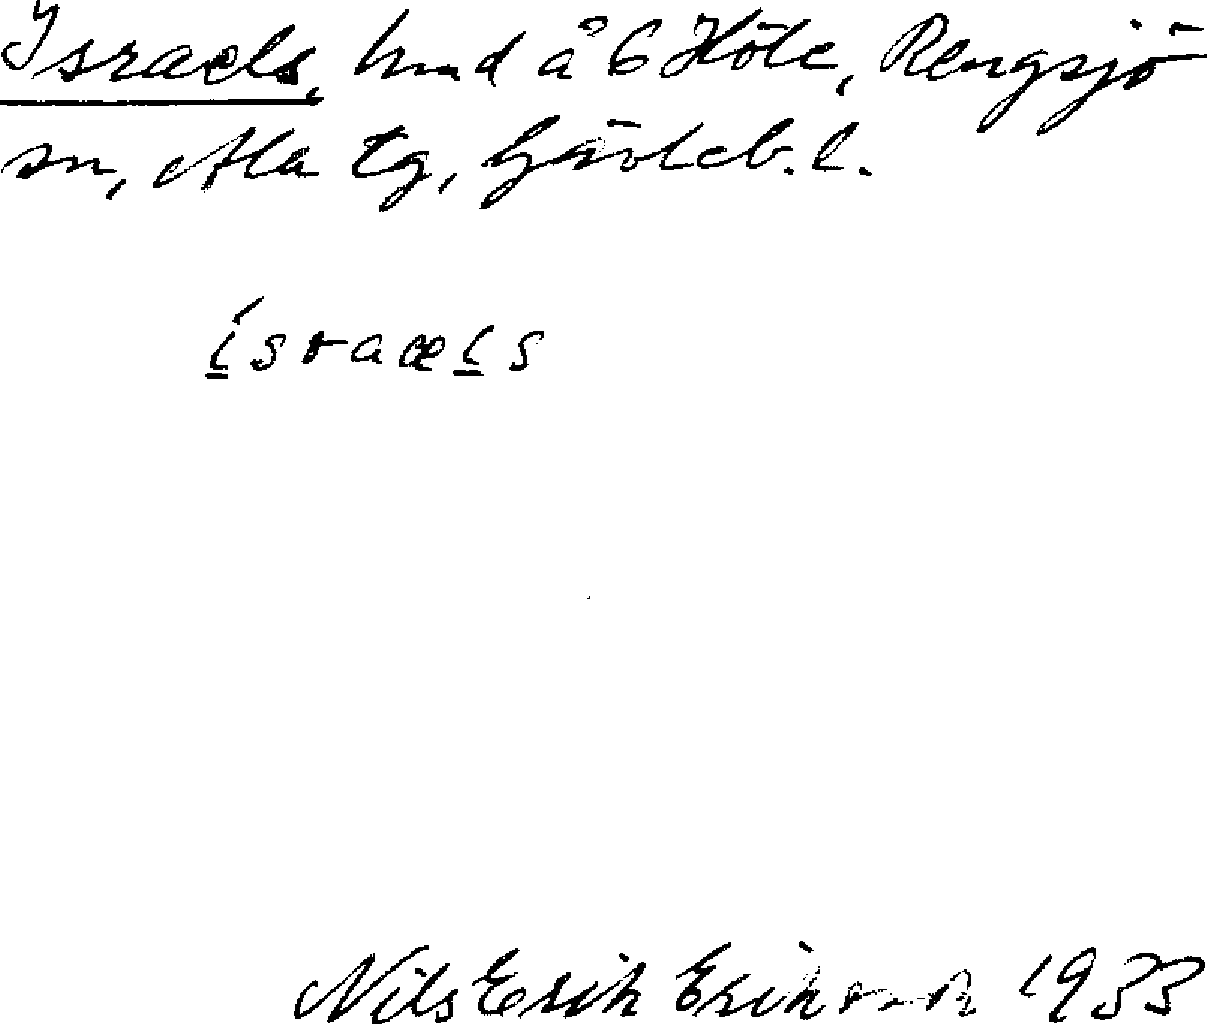 Israels, hmd å 6 Höle, Rengsjö
sn, Ala tg, Gävleb. l.
ísraæls
Nils Erik Erikson 1933